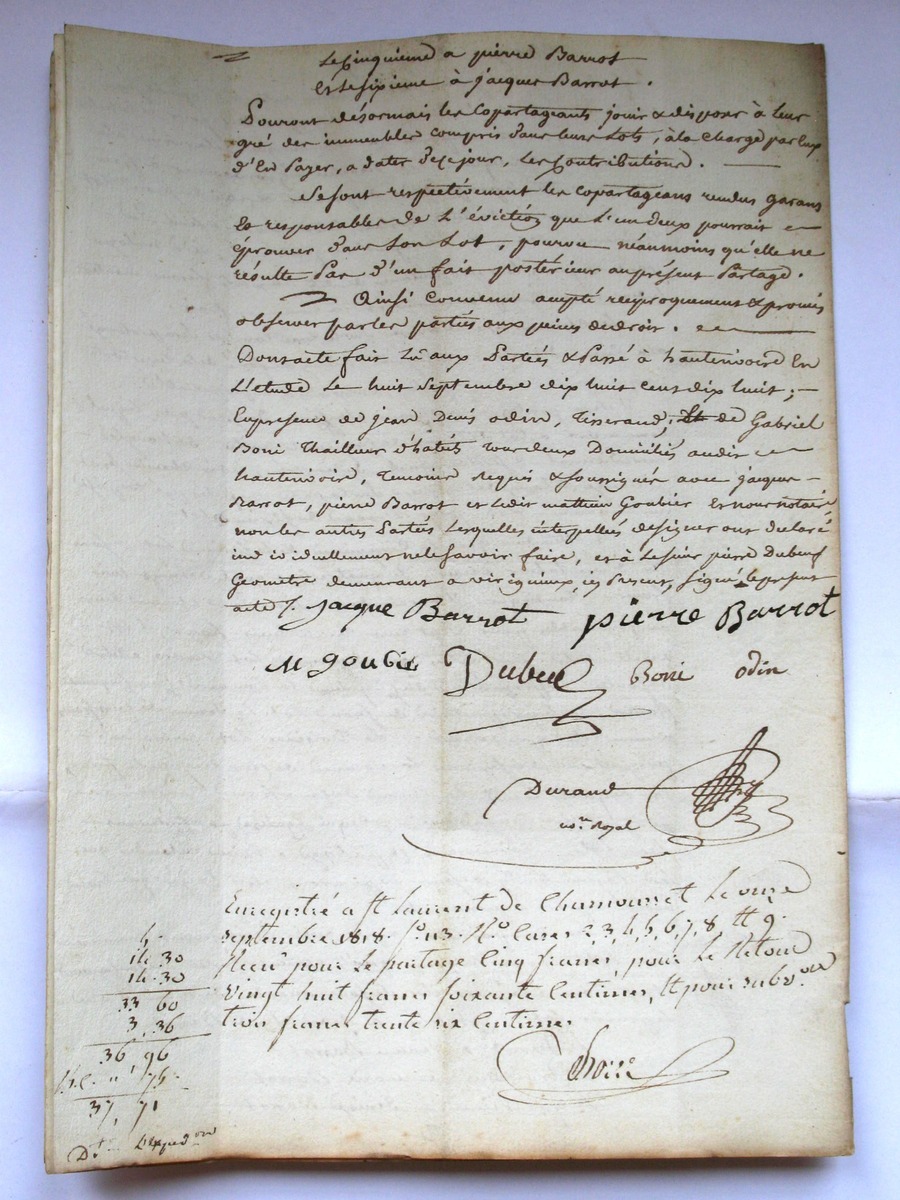 Le Cinquieme a pierre Barrot
Et Le sixieme à jacques Barrot .
Pouront désormais les Copartageants jouir & disposer à leur
gré des immeubles compris dans leurs Lots, à la charge par Eux
d'En payer, a dater de ce jour, Les Contributions .
Se sont respectivement les copartageans rendus garans
Et responsables de L'éviction que L'un deux pourrait
éprouver dans Son Lot, pourvu néanmoins qu'elle ne
résulte Pas d'un fait postérieur au présent Partage .
Ainsi Convenu accepté réciproquement & promis
observer par les parties aux peines de droit .
Dont acte fait Lu aux Parties & Passé à hauterivoire En
L'étude Le huit Septembre dix huit cent dix huit ;
En presence de jean Denis odin, Tisserand, & de Gabriel
Boiri Thailleur d'habits tous deux Domiciliés audit
hauterivoire, Temoins Requis & soussignés avec jacques
Barrot, pierre Barrot et Ledit mathieu Goubier Et nous notaire
non les autres Parties Lesquelles interpellées de signer ont declaré
individuellement ne le savoir faire, et à Le sieur pierre Dubeuf
Geometre demeurant a virigneux, ici Present, signé le present
acte /. jacque Barrot pierre Barrot
M goubie Dubeuf Boiri odin
Durand
no.re Royal
Enregistré a St Laurent de Chamousset Le onze
septembre 1818. fo. 113. Ro. Cases 2, 3, 4, 5, 6, 7, 8, Et 9.
Recu pour Le partage Cinq francs, pour Le Retour
Vingt huit francs soixante Centimes, Et pour subv.on
trois francs trente six Centimes
5.
14 30
14 30
33 60
3, 36
36 96
75.
37, 71
L'expedition